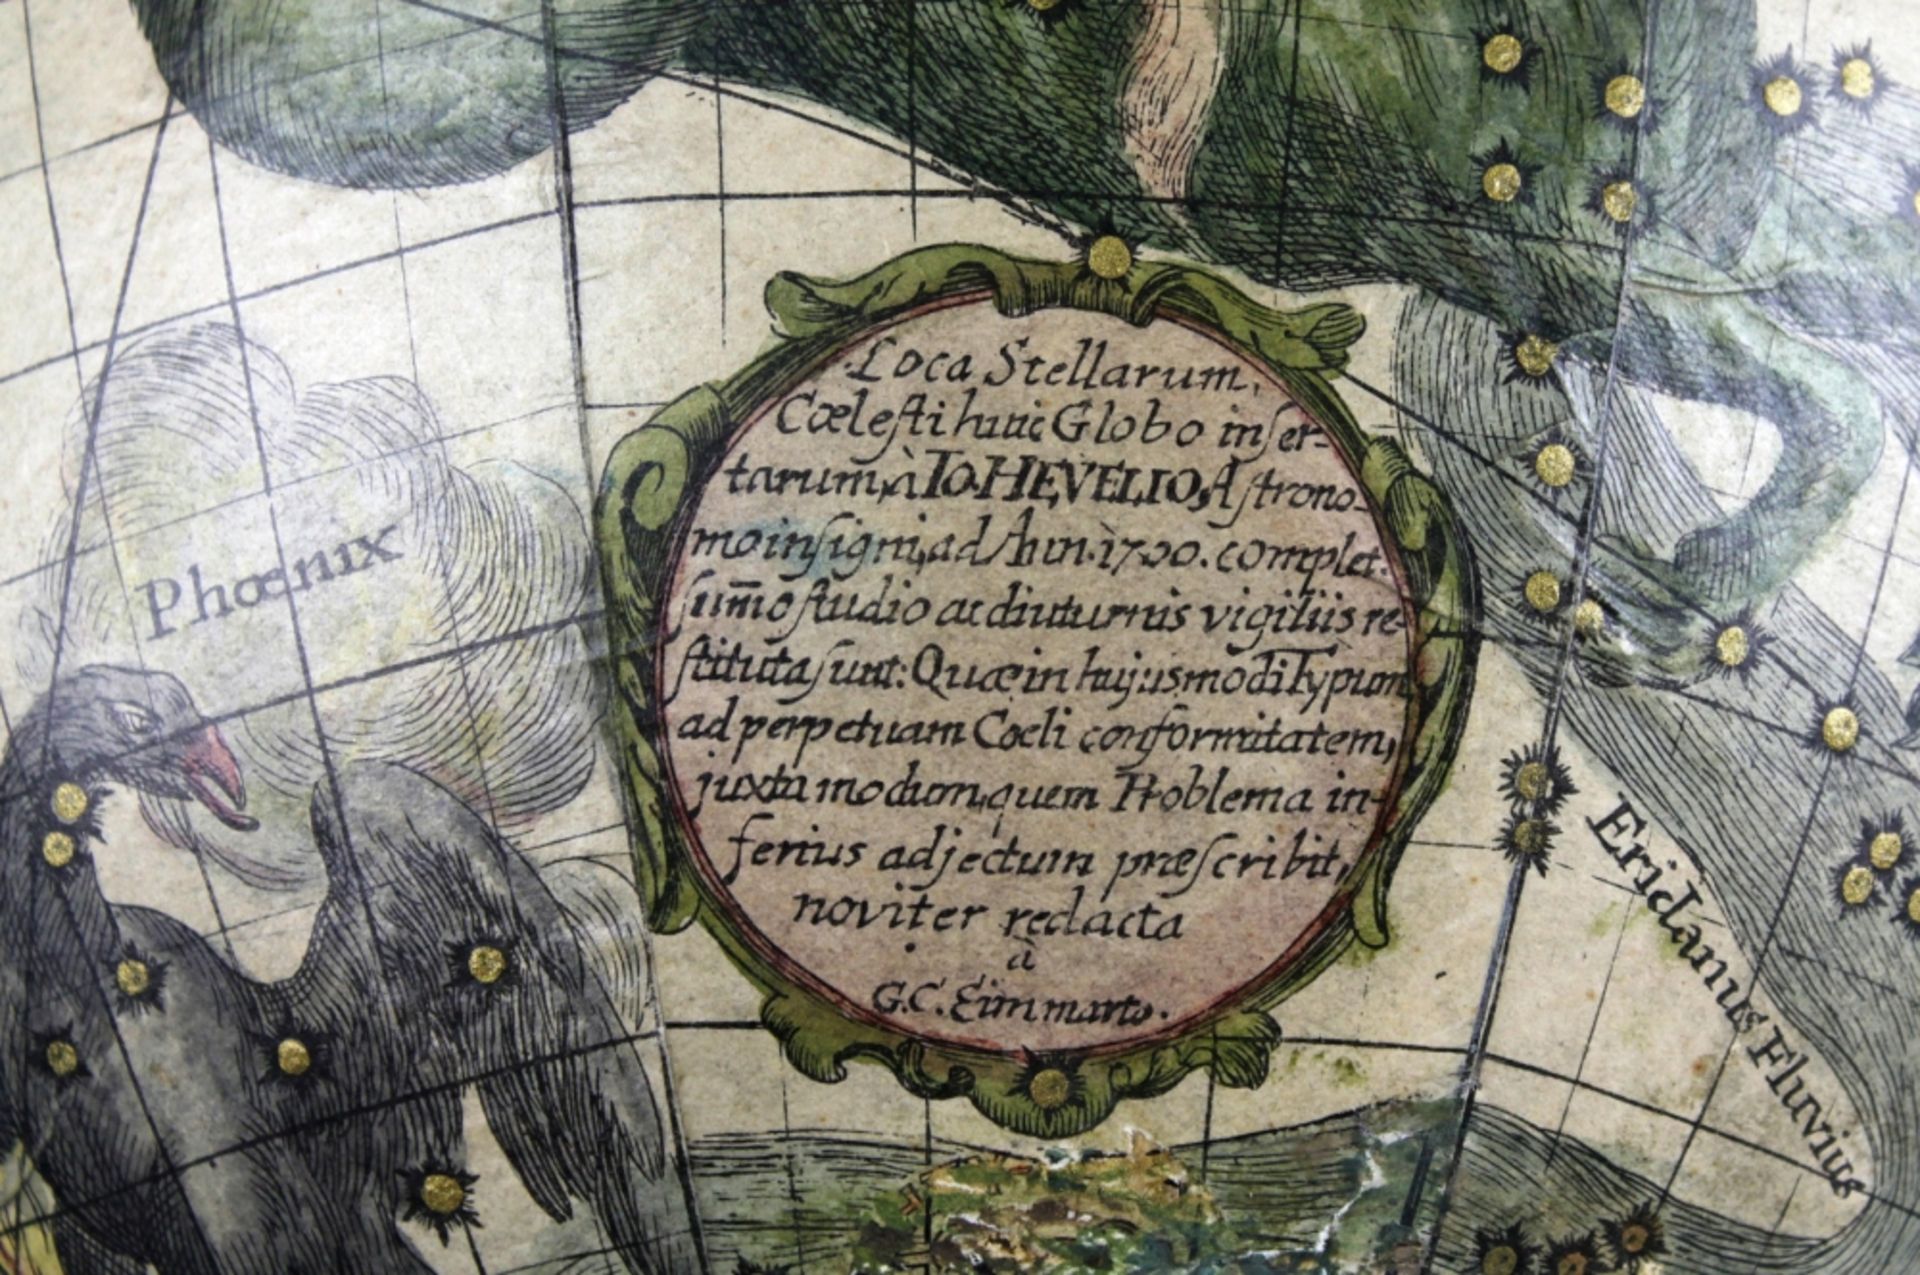 Phœnix
Loca Stellarum,
Cœlesti huic Globo inser-
tarum, à IO. HEVELIO, Astrono-
mo insigni, ad Ann. 1700. complet.
sum̄o studio ac diuturnis vigiliis re-
stituta sunt: Quæ in hujusmodi Typum
ad perpetuam Cœli conformitatem,
juxta modum, quem Problema in-
ferius adjectum præscribit,
noviter redacta
à
G. C. Eimmarto.
Eridanus Fluvius